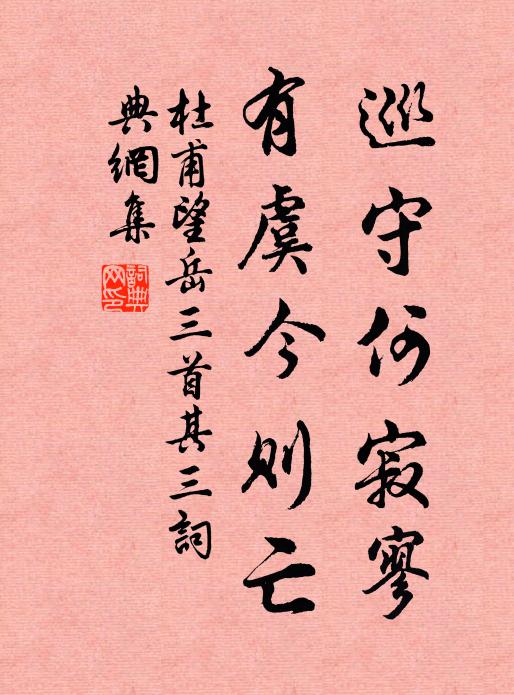 巡守何寂寥
有虞今則亡
杜甫望岳三首其三詞
典網集
詞典
网印